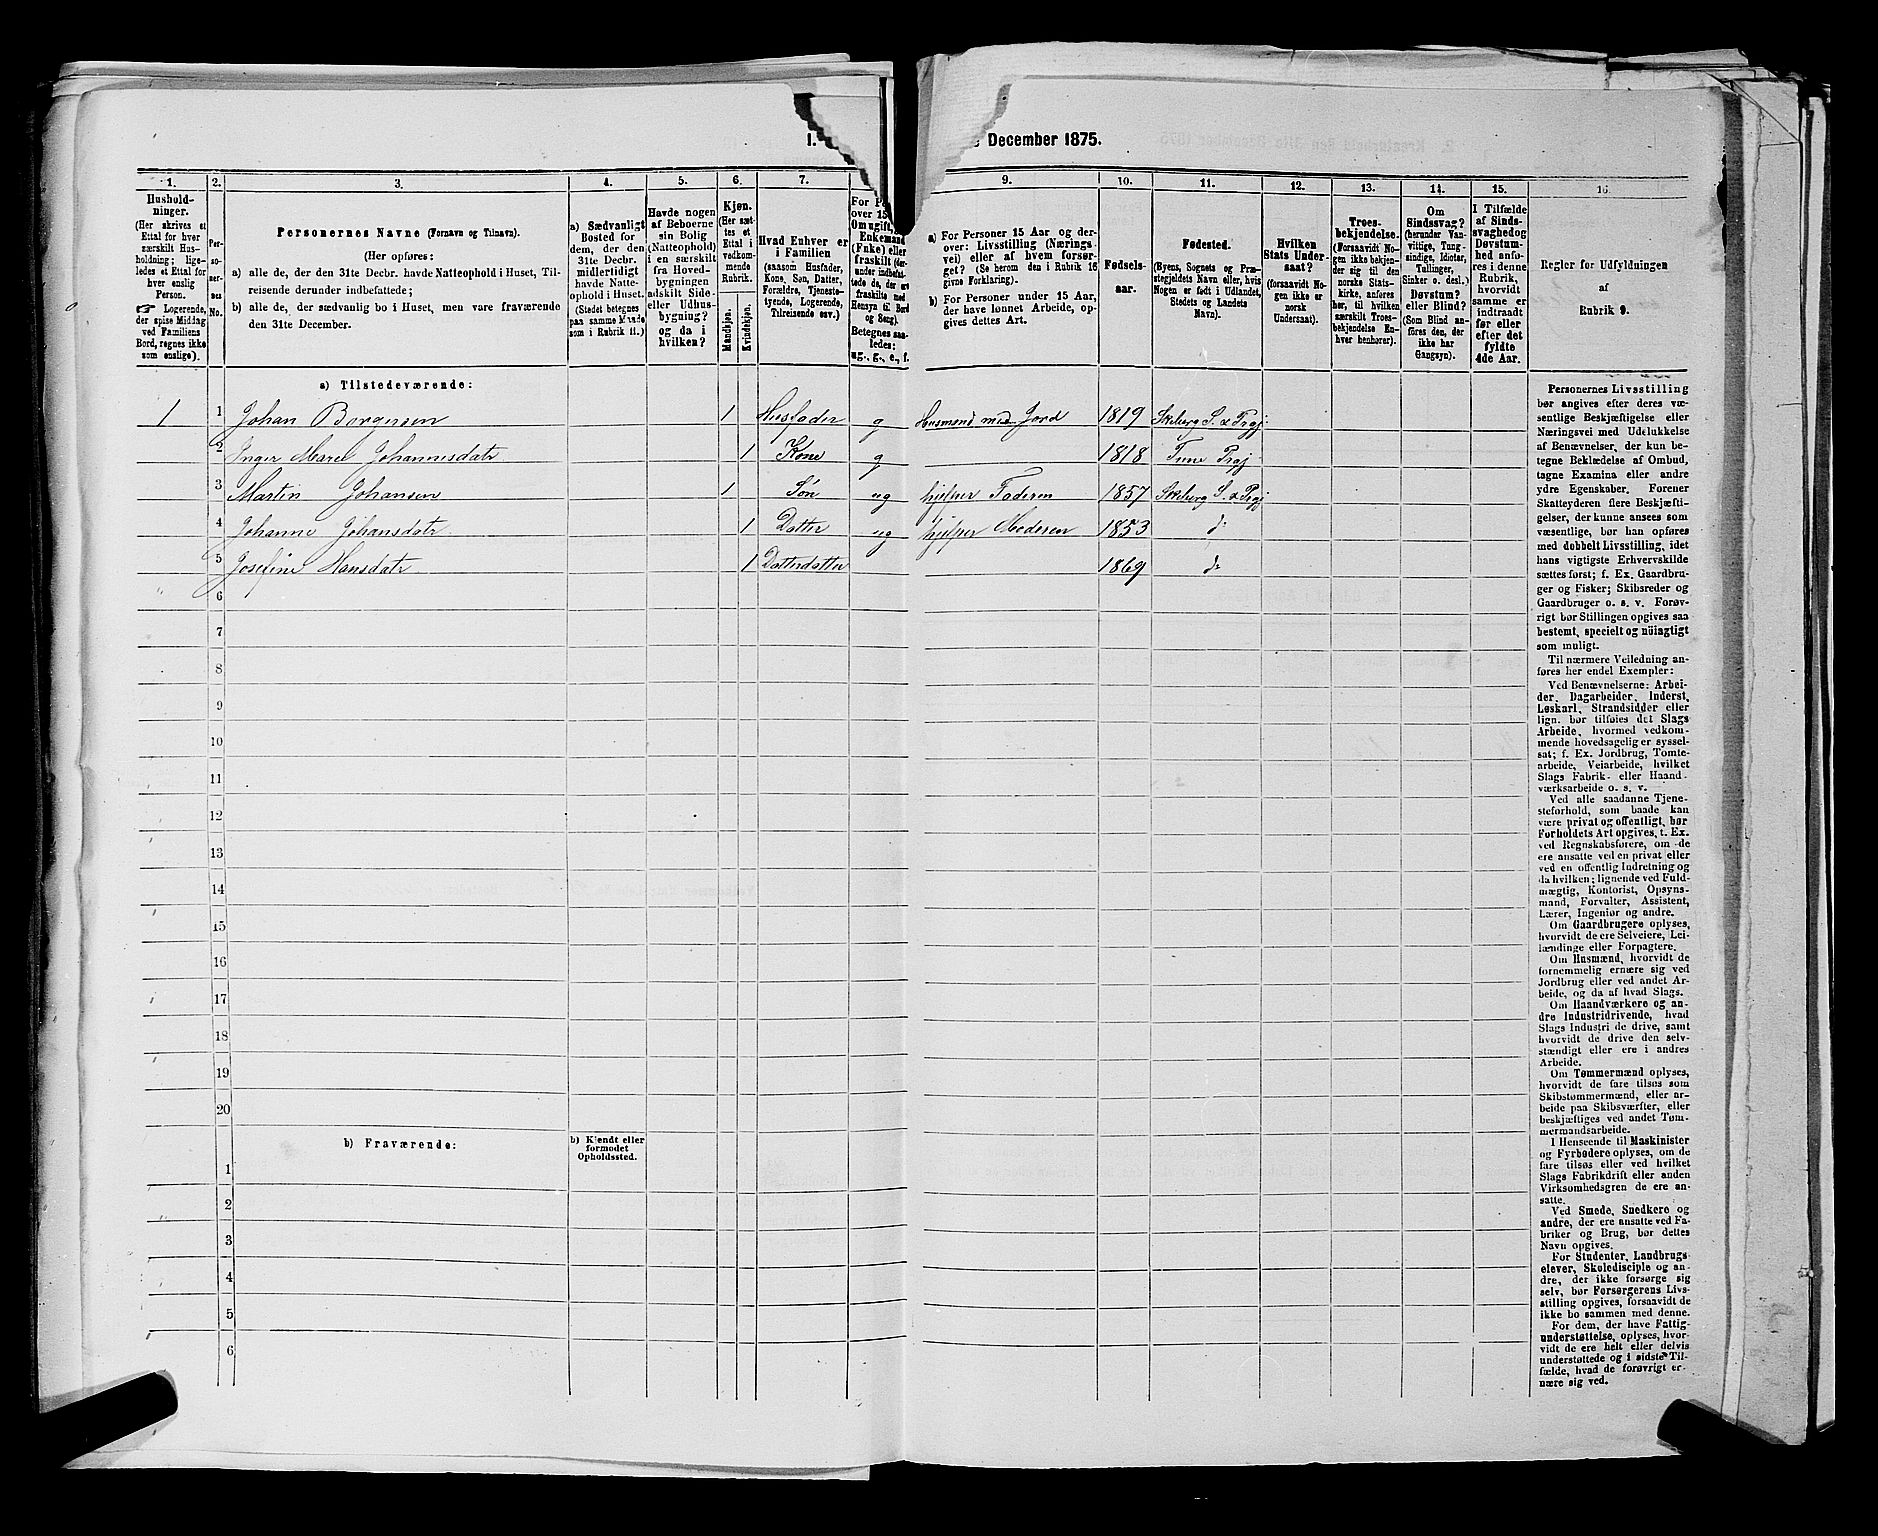 1.
December 1875.
1. 2. 3. 4. 5. 6. 7. 9. 10. 11. 12. 13. 14. 15. 16.
Husholdninger.
(Her skrives et
Ettal for hver
særskilt Husholdning;
Logerende,
der spise Middag
ved Familiens
Bord, regnes ikke
som enslige).
Personernes No.
Personernes Navne (Fornavn og Tilnavn).
(Her opføres:
a) alle de, der den 31te Decbr. havde Natteophold i Huset, Tilreisende derunder indbefattede;
b) alle de, der sædvanlig bo i Huset, men vare fraværende
den 31te December.
a) Sædvanligt
Bosted for
dem, der den
31te Decbr.
midlertidigt
havde Natteophold i Huset.
(Stedet betegnes
paa samme Maade
som i Rubrik 11.)
Havde nogen
af Beboerne
sin Bolig
(Natteophold)
i en særskilt
fra Hovedbygningen
adskilt Side-
eller Udhusbygning?
og da i
hvilken?
Kjøn.
(Her sættes et
Ettal i
vedkommende
Rubrik.
Mandkjøn.
Kvindekjøn.
Hvad Enhver er
i Familien
(saasom Husfader,
Kone, Søn, Datter,
Forældre, Tjenestetyende, Logerende,
Tilreisende osv.)
Betegnes saaledes:
ug., g., e., f.
a) For Personer 15 Aar og derover: Livsstilling (Næringsvei) eller af hvem forsørget? (Se herom den i Rubrik 16
givne Forklaring).
b) For Personer under 15 Aar,
der have lønnet Arbeide, opgives dettes Art.
Fødselsaar.
Fødested.
(Byens, Sognets og Præstegjeldets Navn eller, hvis
Nogen er født i Udlandet,
Stedets og Landets
Navn).
Hvilken
Stats Undersaat?
(forsaavidt Nogen ikke er
norsk
Undersaat).
Troesbekjendelse.
(Forsaavidt Nogen ikke bekjender sig til den
norske Statskirke, anføres
her, til hvilken
særskilt Troesbekjendelse Enhver henhører).
Om
Sindssvag?
(herunder Vanvittige, Tungsindige, Idioter,
Tullinger,
Sinker o. desl.)
Døvstum?
eller Blind?
(Som Blind anføres den, der
ikke har
Gangsyn).
I Tilfælde
af Sindssvaghed og
Døvstumhed anføres i denne
Rubrik,
hvorvidt
samme er
indtraadt
før eller
efter det
fyldte
4de Aar.
Regler for Udfyldningen
af
Rubrik 9.
a) Tilstedeværende:
1 1 Johan Borgersen 1 Husfader g Husmand med Jord 1819 Skiberg S. & Prgj.
2 Inger Marel Johannesdatr 1 Kone g 1818 Tune Prgj.
3 Martin Johansen 1 Søn ug hjelper Faderen 1857 Skiberg S. & Prgj
4 Johanne Johansdatr 1 Datter ug hjelper Moderen 1853 do
5 Josefine Hansdatr 1 Datterdatter 1869 do
6
7
8
9
10
11
12
13
14
15
16
17
18
19
20
b) Fraværende:
b) Kjendt eller
formodet
Opholdssted.
1
2
3
4
5
6
Personernes Livsstilling
bør angives efter deres væsentlige Beskjæftigelse eller
Næringsvei med Udelukkelse
af Benævnelser, der kun betegne Beklædelse af Ombud,
tagne Examina eller andre
ydre Egenskaber. Forener
Skatteyderen flere Beskjæftigelser, der kunne ansees som
væsentlige, bør han opføres
med dobbelt Livsstilling, idet
hans vigtigste Erhvervskilde
sættes først; f. Ex. Gaardbruger og Fisker; Skibsreder og
Gaardbruger o. s. v. Forøvrigt bør Stillingen opgives saa
bestemt, specielt og nøiagtigt
som muligt.
Til nærmere Veiledning anføres her endel Exempler:
Ved Benævnelserne: Arbeider, Dagarbeider, Inderst,
Løskarl, Strandsidder eller
lign. bør tilføies det Slags
Arbeide, hvormed vedkommende hovedsagelig er sysselsat; f. Ex. Jordbrug, Tomtearbeide, Veiarbeide, hvilket
Slags Fabrik- eller Haandværksarbeide o. s. v.
Ved alle saadanne Tjenesteforhold, som baade kan
være privat og offentligt, bør
Forholdets Art opgives, t. Ex.
ved Regnskabsførere, om de
ere ansatte ved en privat eller
ved en offentlig Indretning og
da hvilken; lignende ved Fuldmægtig, Kontorist, Opsynsmand, Forvalter, Assistent,
Lærer, Ingeniør og andre.
Om Gaardbrugere oplyses,
hvorvidt de ere Selveiere, Leilændinge eller Forpagtere.
Om Husmænd, hvorvidt de
fornemmelig ernære sig ved
Jordbrug eller ved andet Arbeide, og da af hvad Slags.
Om Haandværkere og andre Industridrivende, hvad
Slags Industri de drive, samt
hvorvidt de drive den selvstændigt eller ere i andres
Arbeide.
Om Tømmermænd oplyses,
hvorvidt de fare tilsøs som
Skibstømmermænd, eller arbeide paa Skibsværfter, eller
beskjæftiges ved andet Tømmermandsarbeide.
I Henseende til Maskinister
og Fyrbødere oplyses, om de
fare tilsøs eller ved hvilket
Slags Fabrikdrift eller anden
Virksomhedsgren de ere ansatte.
Ved Smede, Snedkere og
andre, der ere ansatte ved Fabriker og Brug, bør dettes
Navn opgives.
For Studenter, Landbrugselever, Skoledisciple og andre, der ikke forsørge sig
selv, bør Forsørgerens Livsstilling opgives, forsaavidt de
ikke bo sammen med denne.
For dem, der have Fattigunderstøttelse, oplyses, hvorvidt de ere helt eller delvis
understøttede og i sidste Tilfælde, hvad de forøvrigt ernære sig ved.